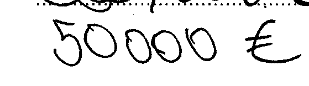 50000 €